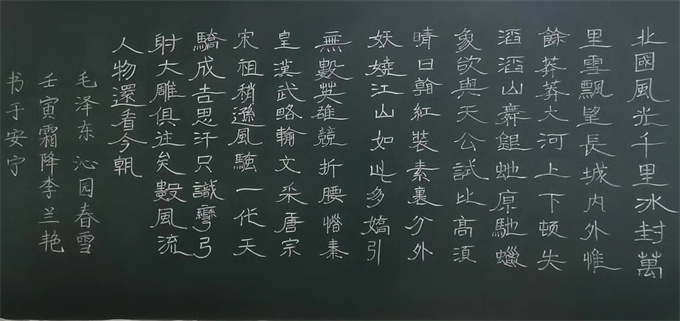 北國風光千里冰封萬
里雪飄望長城内外惟
餘莽莽大河上下頓失
滔滔山舞銀蛇原馳蠟
象欲與天公試比高須
晴日看紅裝素裹分外
妖嬈江山如此多嬌引
無數英雄競折腰惜秦
皇漢武略輸文采唐宗
宋祖稍遜風騷一代天
驕成吉思汗只識彎弓
射大雕俱往矣數風流
人物還看今朝
毛泽东 沁园春雪
壬寅霜降李兰艳
书于安宁